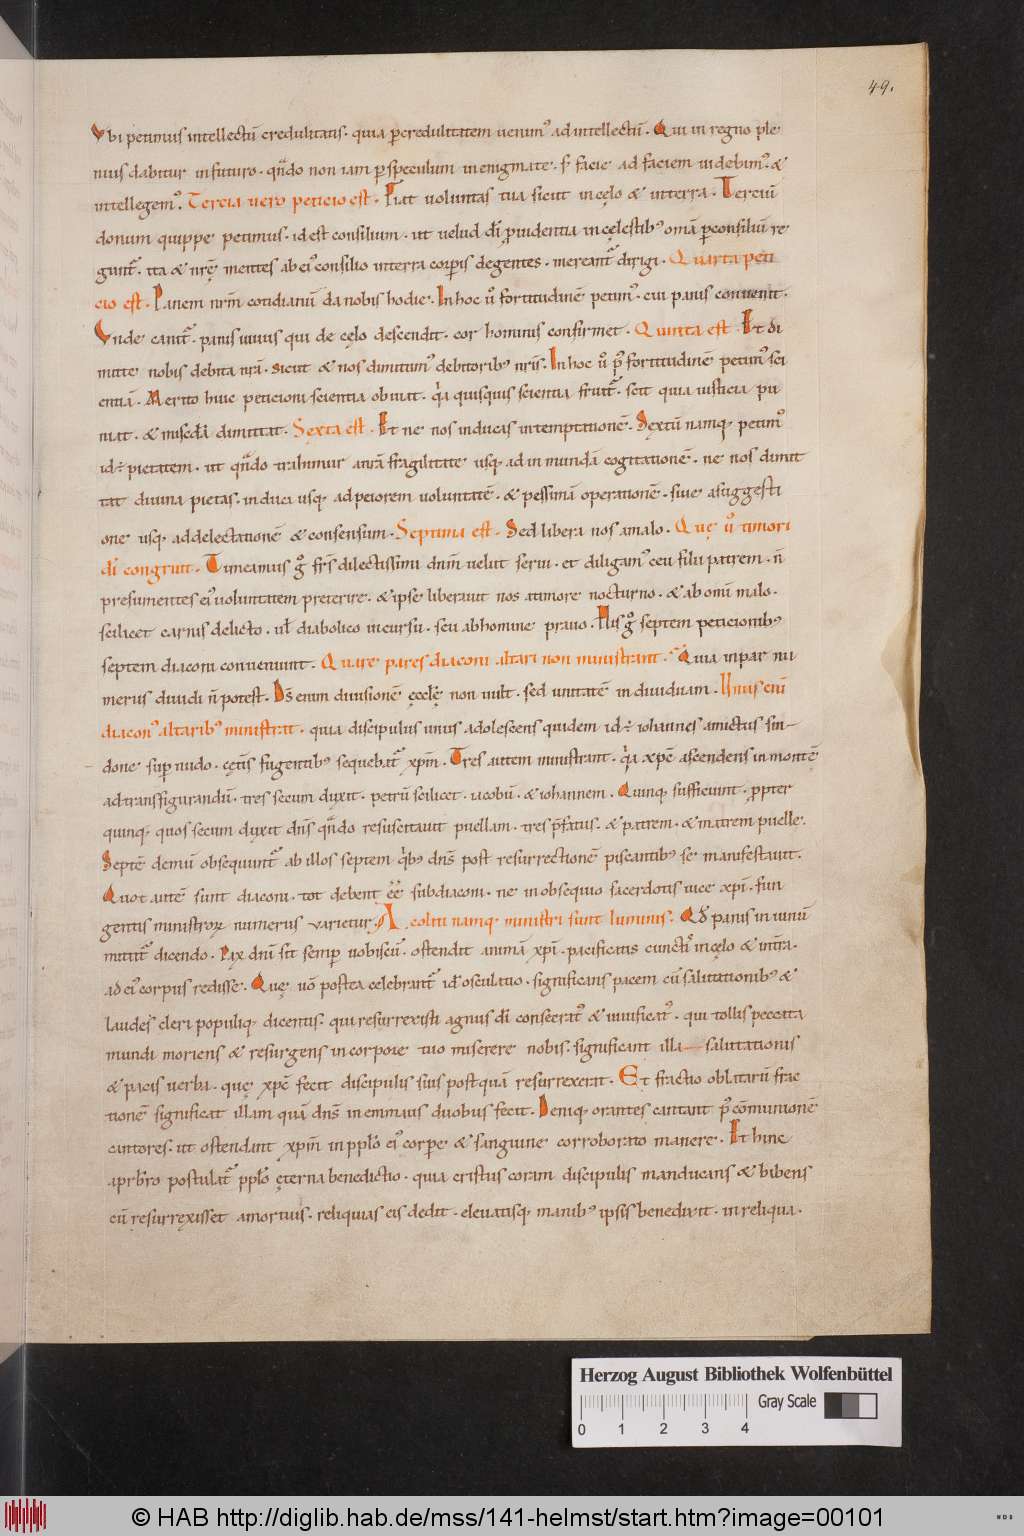 49.
Vbi petimus intellectū credulitatis. quia p credulitatem uenimꝰ ad intellectū. Qui in regno ple
nius dabitur in futuro. qn̄do non iam p speculum in enigmate. sꝫ facie ad faciem uidebimꝰ. &
intellegemꝰ. Tercia uero peticio est. Fiat uoluntas tua sicut in cęlo & in terra. Terciū
donum quippe petimus. id est consilium. ut uelud dī prudentia in cęlestibꝰ om̄a p consiliū re
gunt᷒. ita & nr̄ę mentes ab eiꝰ consilio in terra corporis degentes. mereant᷒ dirigi. Quarta peti
cio est. Panem nrm̄ cotidianū da nobis hodie. In hoc ū fortitudinē petimꝰ. cui panis conuenit.
Vnde canit᷒. panis uiuus qui de cęlo descendit. cor hominis confirmet. Quinta est. Et di
mitte nobis debita nrā. sicut & nos dimittimꝰ debitoribꝰ nrīs. In hoc ū p̄ fortitudinē petimꝰ sci
entiā. Merito huic peticioni scientia obuiat. qa quisquis scientia fruit᷒. scit quia iusticia pu
niat. & misc̄dia dimittat. Sexta est. Et ne nos inducas in temptationē. Sextū namq; petimꝰ
id ÷ pietatem. ut qn̄do trahimur aura fragilitate usq; ad in mundā cogitationē. ne nos dimit
tat diuina pietas. in duci usq; ad peiorem uoluntatē. & pessimā operationē. siue a suggesti
one usq; ad delectationē & consensum. Septima est. Sed libera nos a malo. Quę ū timori
dī congruit. Timeamus g frs̄ dilectissimi dnm̄ uelut serui. et diligamꝰ ceu filii patrem. n̄
presumentes eiꝰ uoluntatem preterire. & ipse liberauit nos a timore nocturno. & ab omī malo.
scilicet carnis delicto. uł diabolico incursu. seu ab homine prauo. His g septem peticionibꝰ
septem diaconi conueniunt. Quare pares diaconi altari non ministrant. Quia in par nu
merus diuidi n̄ potest. Ds̄ enim diuisionē ęcclę̄ non uult. sed unitatē indiuiduam. Vnus enī
diaconꝰ altaribꝰ ministrat. quia discipulus unus adolescens quidem id ÷ iohannes amictus sin-
done sup nudo. cętīs fugientibꝰ sequebat᷒ xpm̄. Tres autem ministrant. qa xpc̄ ascendens in montē
ad transfigurandū. tres secum duxit. petrū scilicet. iacobū. & iohannem. Quinq; sufficiunt. ppter
quinq; quos secum duxit dn̄s qn̄do resuscitauit puellam. tres p̄fatus. & patrem. & matrem puelle.
Septē demū obsequunt᷒ ab illos septem qibꝰ dn̄s post resurrectionē piscantibꝰ se manifestauit.
Quot autē sunt diaconi. tot debent ee̅ subdiaconi. ne in obsequio sacerdotis uice xpī. fun
gentis ministroꝝ numerus varietur. Acoliti namq; ministri sunt luminis. Qđ panis in uinū
mittit᷒ dicendo. Pax dnī sit semp uobiscū. ostendit animā xpī. pacificatis cunctis in cęlo & in tr̄a.
ad eiꝰ corpus redisse. Quę uō postea celebrant᷒ id ÷ osculatio. significans pacem cū salutationibꝰ &
laudes cleri populiq; dicentis. qui resurrexisti agnus dī consecrat᷒ & uiuificat᷒. qui tollis peccata
mundi moriens & resurgens in corpore tuo miserere nobis. significant illa salutationis
& pacis uerba. quę xpc̄ fecit discipulis suis postquā resurrexerat. Et fractio oblatarū frac
tionē significat illam quā dn̄s in emmaus duobus fecit. Deniq; orantes cantant p̄ cōmunionē
cantores. ut ostendant xpm̄ in pplō eiꝰ corpe & sanguine corroborato manere. Et hinc
a prb̄ro postulat᷒ pplō ęterna benedictio. quia cristus coram discipulis manducans & bibens
cū resurrexisset a mortuis. reliquias eis dedit. eleuatisq; manibꝰ ipsis benedixit. in reliqua.
Herzog August Bibliothek Wolfenbüttel
0 1 2 3 4
Gray Scale
© HAB http://diglib.hab.de/mss/141-helmst/start.htm?image=00101